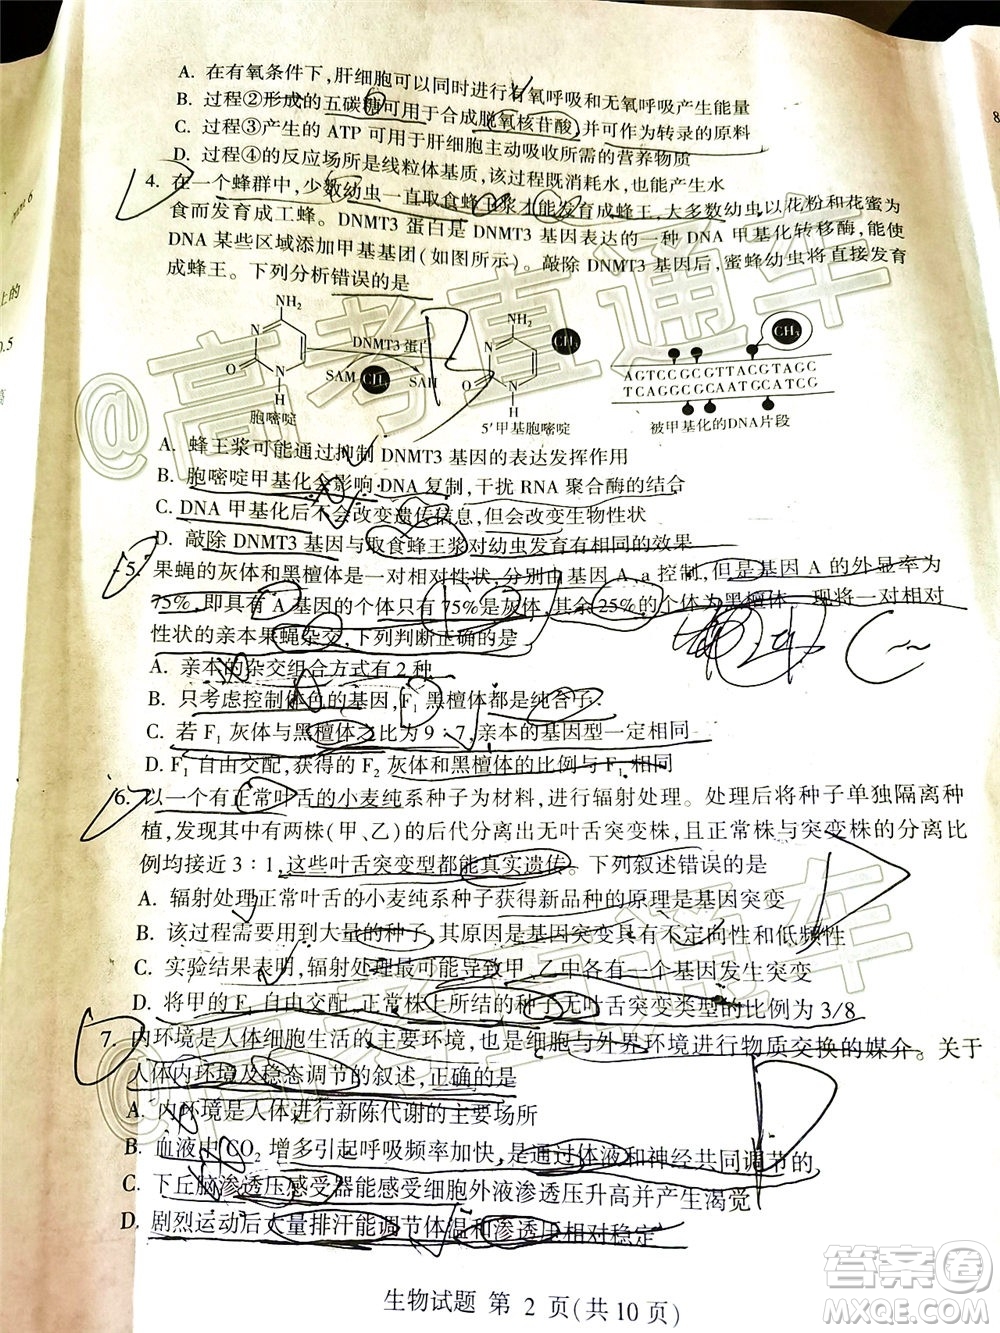 A. 在有氧条件下,肝细胞可以同时进行有氧呼吸和无氧呼吸产生能量
B. 过程②形成的五碳糖可用于合成脱氧核苷酸,并可作为转录的原料
C. 过程③产生的 ATP 可用于肝细胞主动吸收所需的营养物质
D. 过程④的反应场所是线粒体基质,该过程既消耗水,也能产生水
4. 在一个蜂群中,少数幼虫一直取食蜂王浆才能发育成蜂王,大多数幼虫以花粉和花蜜为
食而发育成工蜂。DNMT3 蛋白是 DNMT3 基因表达的一种 DNA 甲基化转移酶,能使
DNA 某些区域添加甲基基团(如图所示)。敲除 DNMT3 基因后,蜜蜂幼虫将直接发育
成蜂王。下列分析错误的是
NH₂
N
O
N
H
胞嘧啶
DNMT3 蛋白
SAM CH₃ SAH
NH₂
N
O
N
H
5'甲基胞嘧啶
CH₃
AGTCCGCGTTACGTAGC
TCAGGCGCAATGCATCG
被甲基化的DNA片段
A. 蜂王浆可能通过抑制 DNMT3 基因的表达发挥作用
B. 胞嘧啶甲基化会影响 DNA 复制,干扰 RNA 聚合酶的结合
C. DNA 甲基化后不会改变遗传信息,但会改变生物性状
D. 敲除 DNMT3 基因与取食蜂王浆对幼虫发育有相同的效果
5. 果蝇的灰体和黑檀体是一对相对性状,分别由基因 A、a 控制,但是基因 A 的外显率为
75%,即具有 A 基因的个体只有 75%是灰体,其余 25%的个体为黑檀体。现将一对相对
性状的亲本果蝇杂交,下列判断正确的是
A. 亲本的杂交组合方式有 2 种
B. 只考虑控制体色的基因,F₁ 黑檀体都是纯合子
C. 若 F₁ 灰体与黑檀体之比为 9∶7,亲本的基因型一定相同
D. F₁ 自由交配,获得的 F₂ 灰体和黑檀体的比例与 F₁ 相同
6. 以一个有正常叶舌的小麦纯系种子为材料,进行辐射处理。处理后将种子单独隔离种
植,发现其中有两株(甲、乙)的后代分离出无叶舌突变株,且正常株与突变株的分离比
例均接近 3∶1,这些叶舌突变型都能真实遗传。下列叙述错误的是
A. 辐射处理正常叶舌的小麦纯系种子获得新品种的原理是基因突变
B. 该过程需要用到大量的种子,其原因是基因突变具有不定向性和低频性
C. 实验结果表明,辐射处理最可能导致甲、乙中各有一个基因发生突变
D. 将甲的 F₁ 自由交配,正常株上所结的种子无叶舌突变类型的比例为 3/8
7. 内环境是人体细胞生活的主要环境,也是细胞与外界环境进行物质交换的媒介。关于
人体内环境及稳态调节的叙述,正确的是
A. 内环境是人体进行新陈代谢的主要场所
B. 血液中 CO₂ 增多引起呼吸频率加快,是通过体液和神经共同调节的
C. 下丘脑渗透压感受器能感受细胞外液渗透压升高并产生渴觉
D. 剧烈运动后大量排汗能调节体温和渗透压相对稳定
生物试题 第 2 页(共10页)
@高考直通车
@高考直通车
答案圈
MXQE.COM